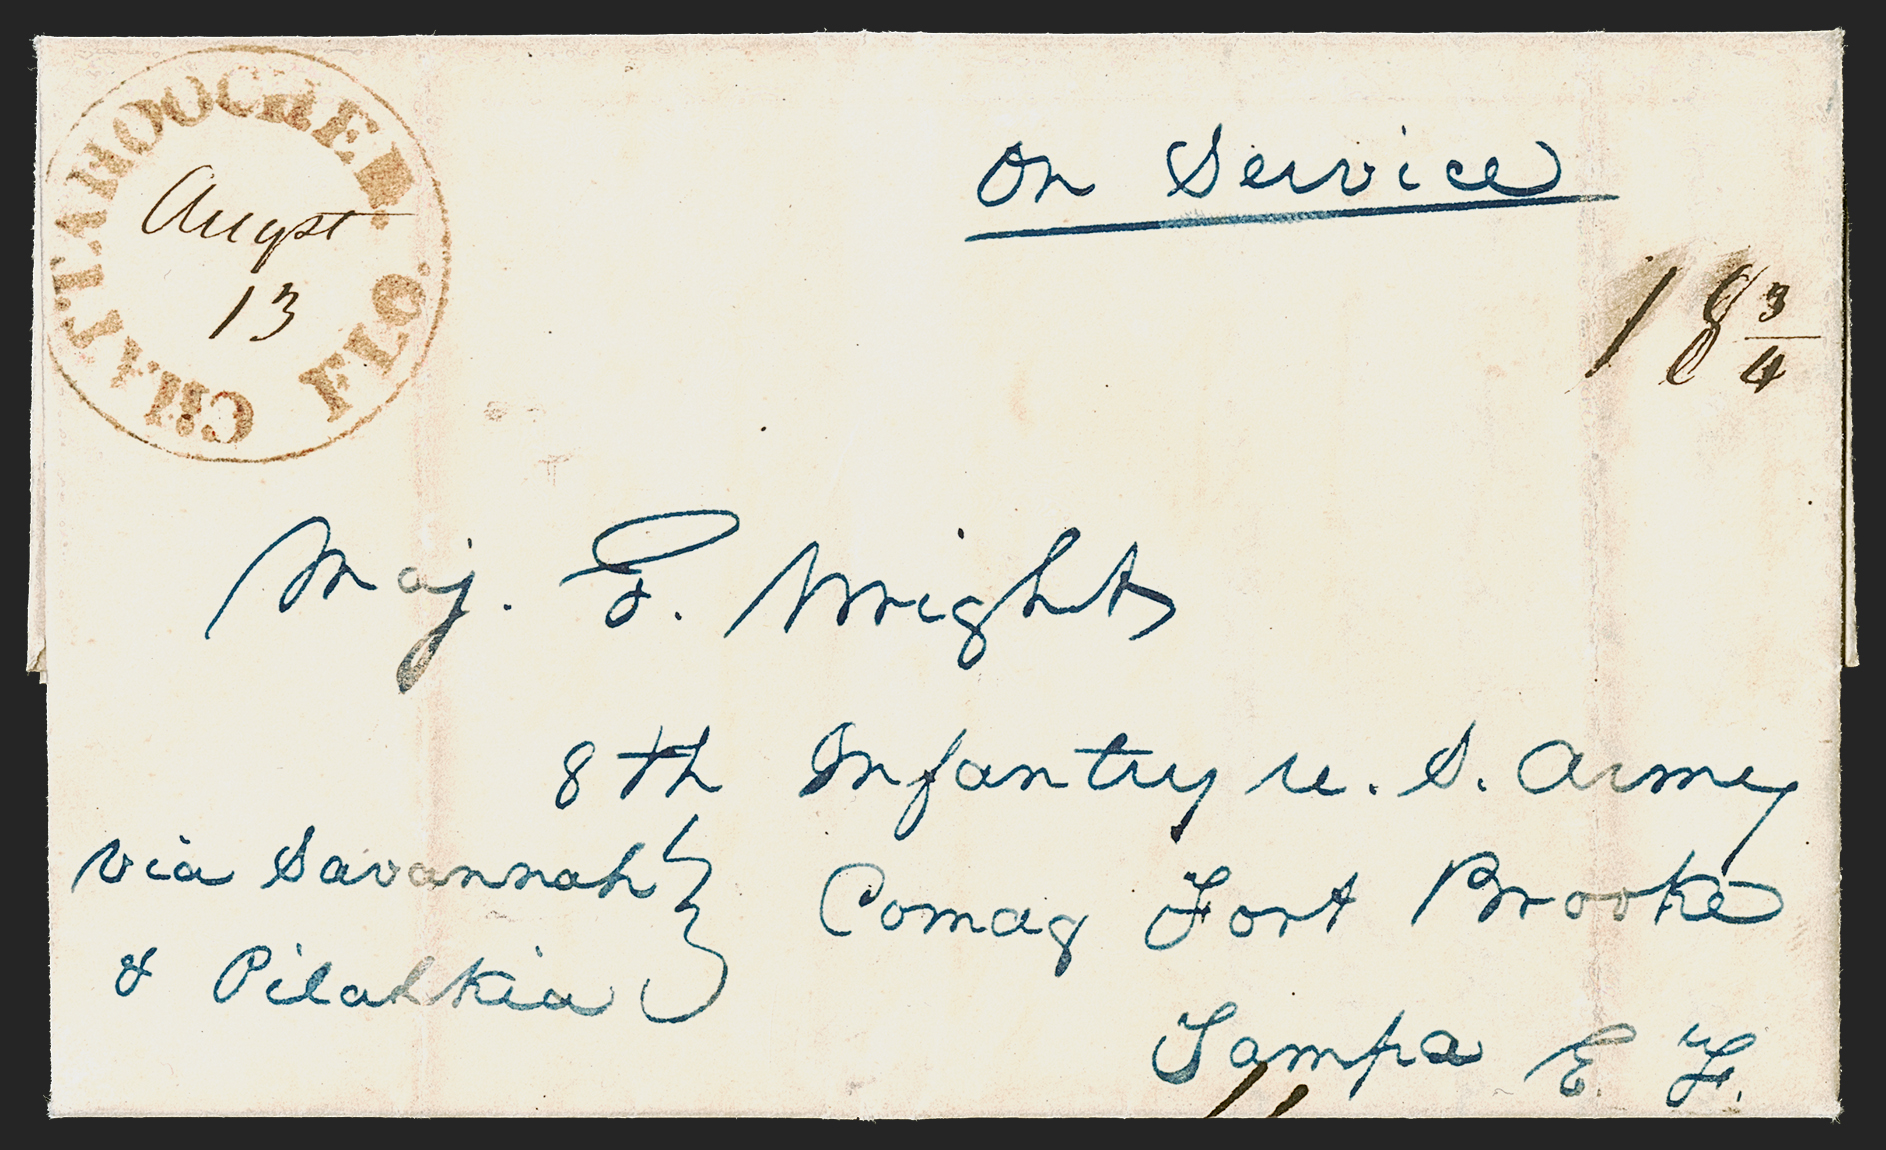 CHATTAHOOCHEE. FLO.
Augst
13
On Service
18 3/4
Maj. G. Wright
8th Infantry U. S. Army
via Savannah } Comdg Fort Brooke
& Pilahkia
Tampa E. F.